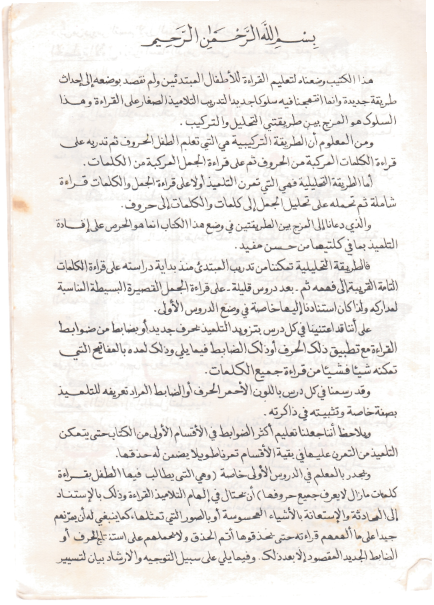 بِسْمِ اللهِ الرَّحْمٰنِ الرَّحِيمِ
هذا الكتيب وضعناه لتعليم القراءة للأطفال المبتدئين ولم نقصد بوضعه إلى إحداث
طريقة جديدة وانما انتهجنا فيه سلوكا جديدا لتدريب التلاميذ الصغار على القراءة وهذا
السلوك هو المزج بين طريقتي التحليل والتركيب.
ومن المعلوم أن الطريقة التركيبية هي التي تعلم الطفل الحروف ثم تدربه على
قراءة الكلمات المركبة من الحروف ثم على قراءة الجمل المركبة من الكلمات.
أما الطريقة التحليلية فهي التي تمرن التلميذ أولا على قراءة الجمل والكلمات قراءة
شاملة ثم تحمله على تحليل الجمل إلى كلمات والكلمات إلى حروف.
والذي دعانا إلى المزج بين الطريقتين في وضع هذا الكتاب انما هو الحرص على إفادة
التلميذ بما في كلتيهما من حسن مفيد.
فالطريقة التحليلية تمكننا من تدريب المبتدئ منذ بداية دراسته على قراءة الكلمات
التامة القريبة إلى فهمه ثم . بعد دروس قليلة . على قراءة الجمل القصيرة البسيطة المناسبة
لمداركه ولذا كان استنادنا إليها خاصة في وضع الدروس الأولى.
على أننا قد اعتنينا في كل درس بتزويد التلميذ بحرف جديد أو بضابط من ضوابط
القراءة مع تطبيق ذلك الحرف أو ذلك الضابط فيما يلي وذلك لمده بالمفاتيح التي
تمكنه شيئا فشيئا من قراءة جميع الكلمات.
وقد رسمنا في كل درس باللون الأحمر الحرف أو الضابط المراد تعريفه للتلميذ
بصفة خاصة وتثبيته في ذاكرته.
ويلاحظ أننا جعلنا تعليم أكثر الضوابط في الأقسام الأولى من الكتاب حتى يتمكن
التلميذ من التمرن عليها في بقية الأقسام تمرنا طويلا يضمن له حذقها.
ويجدر بالمعلم في الدروس الأولى خاصة (وهي التي يطالب فيها الطفل بقراءة
كلمات ما زال لا يعرف جميع حروفها) أن يحتال في إلهام التلاميذ القراءة وذلك بالإستناد
إلى المحادثة والإستعانة بالأشياء المحسوسة أو بالصور التي تمثلها، كما ينبغي له أن يمرنهم
جيدا على ما ألهمهم قراءته حتى يحذقوها أتم الحذق ولا يحملهم على استنتاج الحرف أو
الضابط الجديد المقصود إلا بعد ذلك . وفيما يلي على سبيل التوجيه والارشاد بيان لتسيير